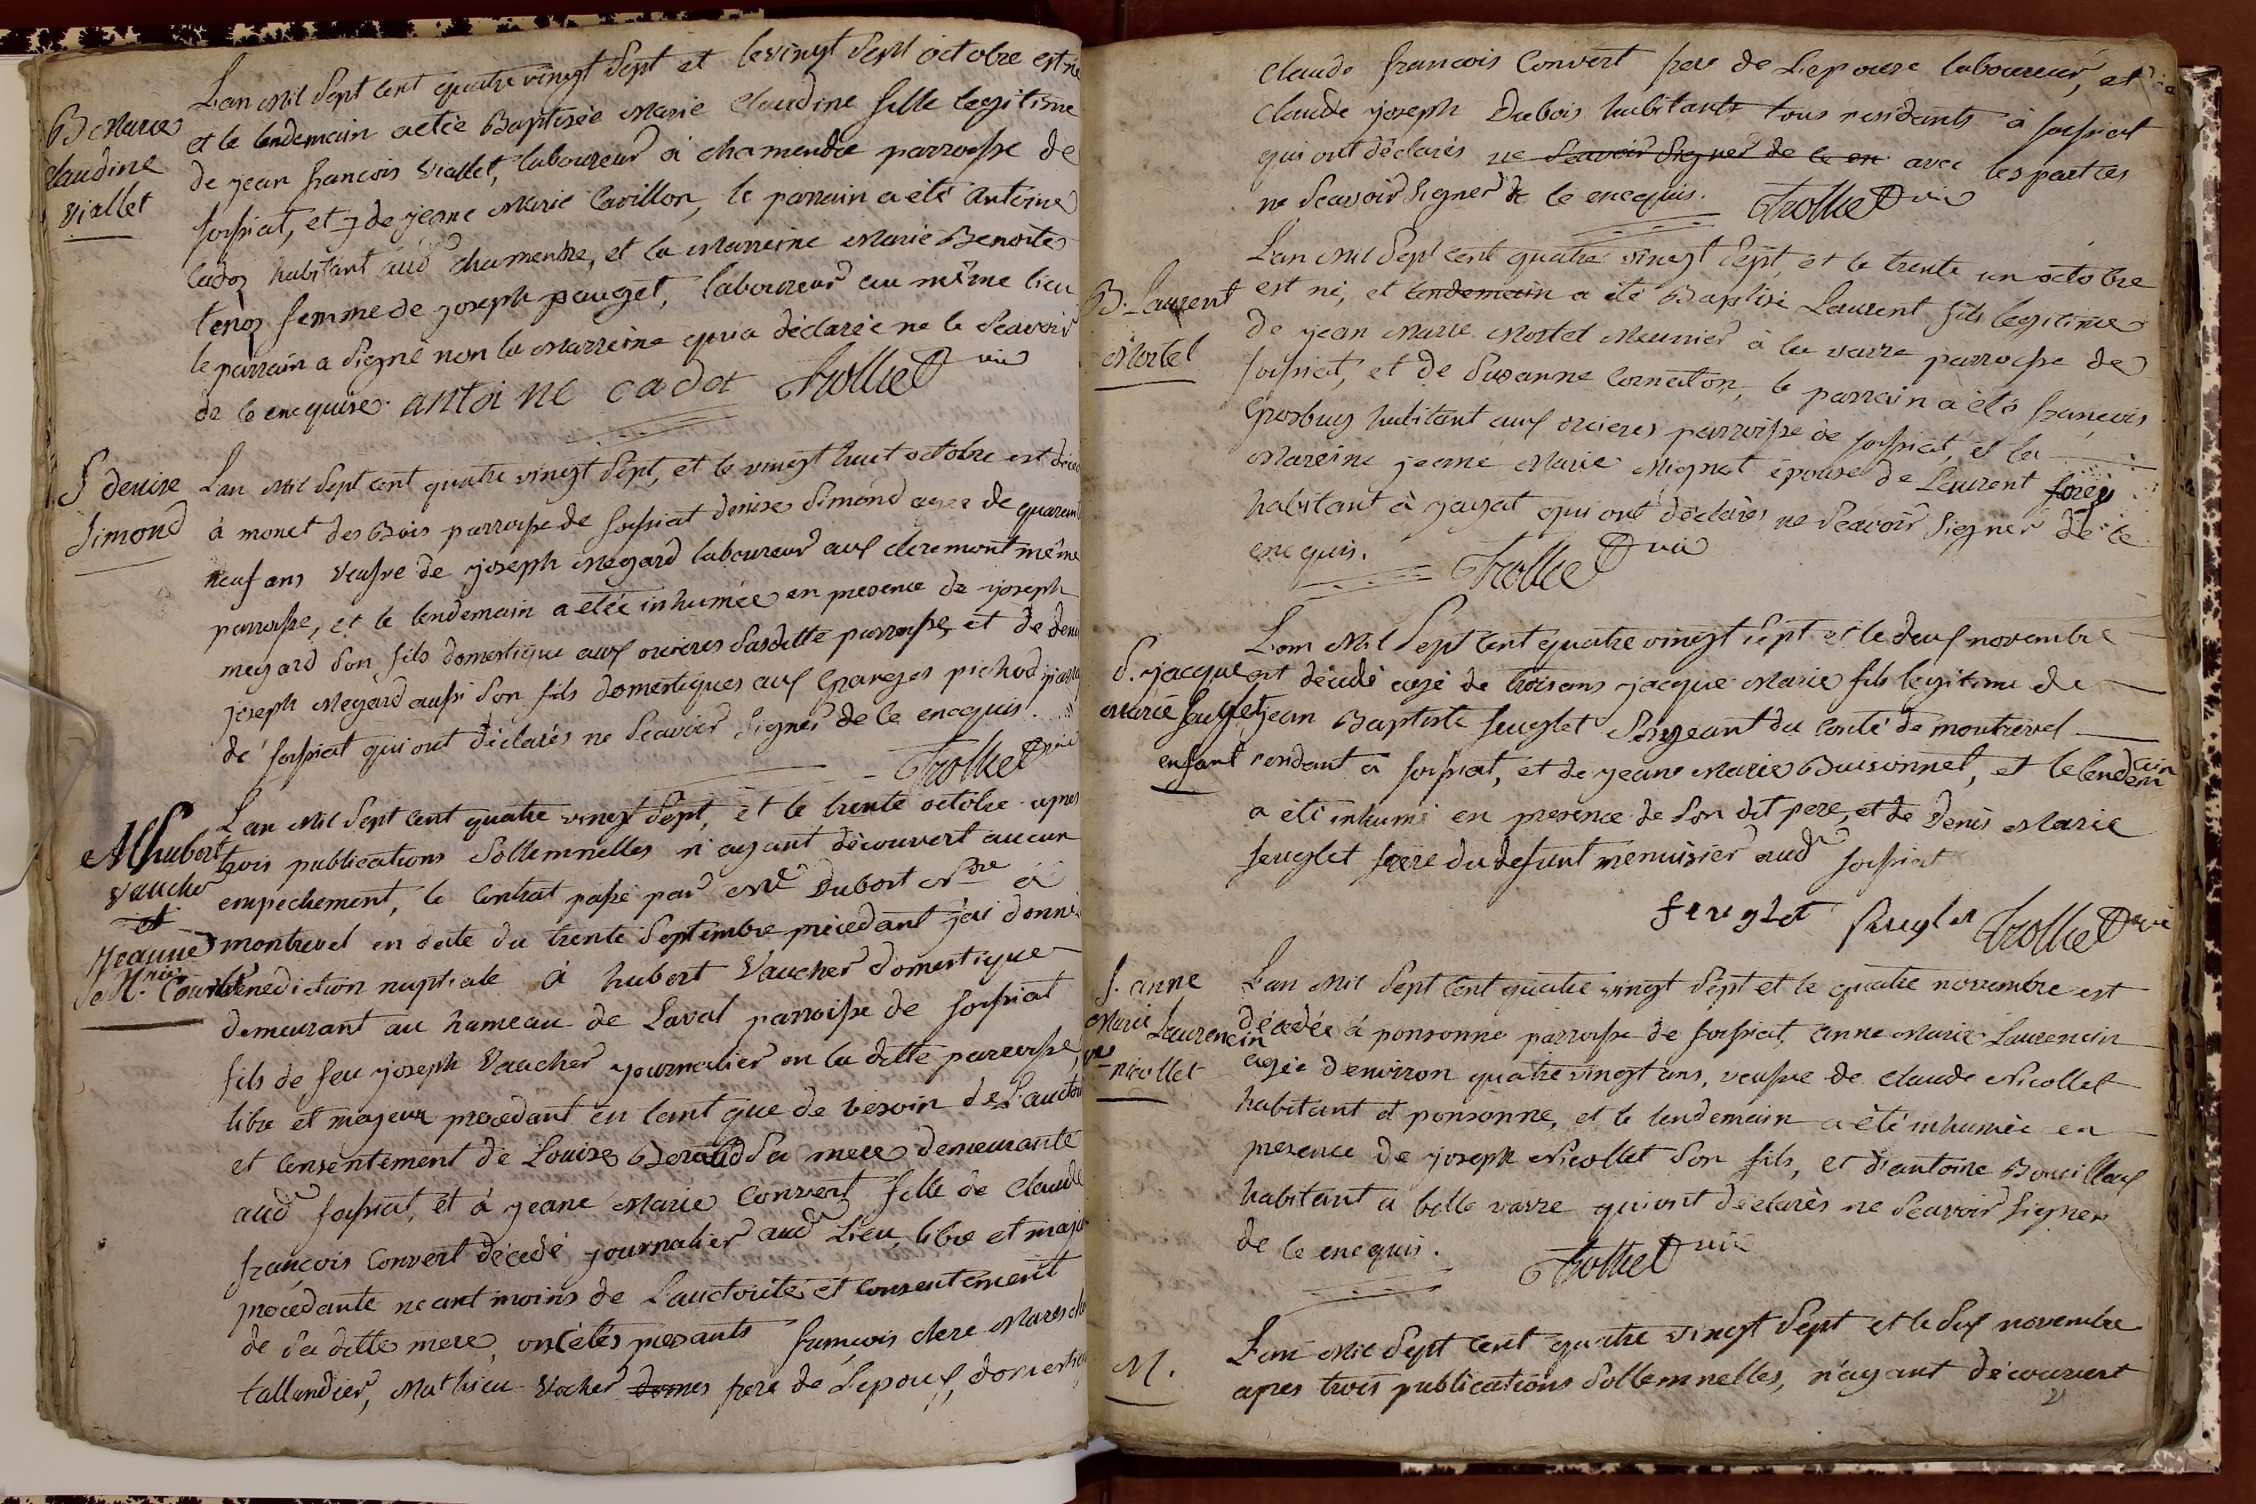 B. Marie
Claudine
Viallet
Lan Mil Sept Cent quatre vingt Sept et le vingt Sept octobre est née
et le lendemain a etée Baptisée Marie Claudine fille legitime
de jean francois Viallet, laboureur à chamendre parroisse de
foissiat, et de jeane Marie Cavillon, le parrain a été antoine
Cadoz habitant aud chamendre, et la Marreine Marie Benoite
tenoz femme de joseph pauget, laboureur au même lieu
le parrain a Signé non la Marreine qui a déclarée ne le Scavoir
de ce enequise. antoine cadot Trolliet vic
S denise
Simond
Lan Mil Sept Cent quatre vingt Sept, et le vingt huit octobre est décé
à monet des Bois parroisse de foissiat denise Simond agee de quarant
neuf ans veufve de joseph Megard laboureur aux claremont même
parroisse, et le lendemain a etée inhumée en presence de joseph
megard Son fils domestique aux orcieres Susditte parroisse, et de denis
joseph Megard aussi Son fils domestiques aux Granges pichod parro
de foissiat qui ont déclarés ne Scavoir Signer de ce enequis.
Trolliet vic
M hubert
Vaucher
et
Jeanne
M.rie Convert
Lan Mil Sept Cent quatre vingt Sept, et le trente octobre apres
trois publications Sollemnelles n'ayant découvert aucun
empechement, le Contrat passé par Me Dubost Nre à
montrevel en date du trente Septembre précedant j'ai donné
la Benediction nuptiale à hubert Vaucher domestique
demeurant au hameau de Laval parroisse de foissiat
fils de feu joseph Vaucher journalier en la ditte parroisse,
libre et majeur procedant en tant que de besoin de L'auctor
et Consentement de Louise Beraud Sa mere demeurante
aud foissiat, et à jeane Marie Convert fille de Claude
françois Convert décedé journalier aud Lieu, libre et maje
procedante neant moins de Lauctorité et Consentement
de Sa ditte mere, ont étés presants françois clere Marech
tallandier, Mathieu Vocher domes frere de Lepoux, domestiq
Claude francois Convert frere de Lepouse laboureur, et
Claude joseph Dubois habitants tous residants à foissiat
qui ont déclarés ne Scavoir Signer de ce en avec les parties
ne Scavoir Signer de ce enequis. Trolliet vic
B. Laurent
Mortel
Lan Mil Sept Cent quatre vingt Sept, et le trente un octobre
est né, et lendemain a été Baptisé Laurent fils legitime
de jean Marie Mortel Meunier à la varre parroisse de
foissiat, et de Susanne Cornaton, le parrain a été françois
Grosbuis habitant aux orcieres parroisse de foissiat, et la
Mareine jeane Marie Mignot épouse de Laurent forey
habitant à jayat qui ont déclarés ne Scavoir Signer de ce
enequis. Trolliet vic
S. jacque
Marie feuglet
enfant
Lan Mil Sept Cent quatre vingt Sept et le deux novembre
est décédé agé de trois ans jacque Marie fils legitime de
jean Baptiste feuglet Sergeant du Conté de montrevel
residant à foissiat, et de jeane Marie Buisonnet, et le lendemain
a été inhumé en presence de Son dit pere, et de Denis Marie
feuglet frere du defunt menuisier aud foissiat
feuglet feuglet Trolliet vic
S. anne
Marie Laurencin
ve nicollet
Lan Mil Sept Cent quatre vingt Sept et le quatre novembre est
décedée à ponsonne parroisse de foissiat, anne Marie Laurencin
agée denviron quatre vingt ans, veufve de Claude Nicollet
habitant à ponsonne, et le lendemain a été inhumée en
presence de joseph Nicollet Son fils, et d'antoine Bouilloux
habitant a belle varre qui ont déclarés ne Scavoir Signer
de ce enequis. Trolliet vic
M.
Lan Mil Sept Cent quatre vingt Sept et le Six novembre
apres trois publications Sollemnelles, n'ayant découvert